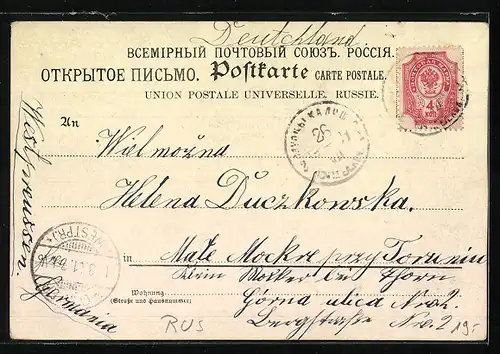 Deutchland
ВСЕМІРНЫЙ ПОЧТОВЫЙ СОЮЗЪ. РОССІЯ.
ОТКРЫТОЕ ПИСЬМО. Postkarte CARTE POSTALE.
UNION POSTALE UNIVERSELLE. RUSSIE.
4
КОП
An
Wielmożna
Helena Duczkowska.
in Małe Mockre przy Toruniu
Klein Mocker bei Thorn
Wohnung
(Straße und Hausnummer)
Górna ulica Nro. 2
Bergstrasse Nro. 2
Westpreussen
Germania
(WESTPR.)
RUS
19.-